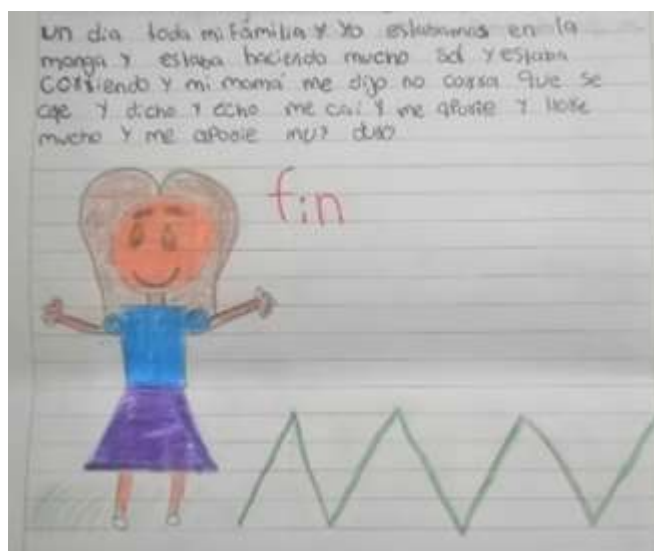 un dia toda mi familia y yo estabamos en la
manga y estaba haciendo mucho sol y estaba
corriendo y mi mamá me dijo no corra que se
cae y dicho y echo me cai y me aporie y llore
mucho y me aporie muy duro
fin